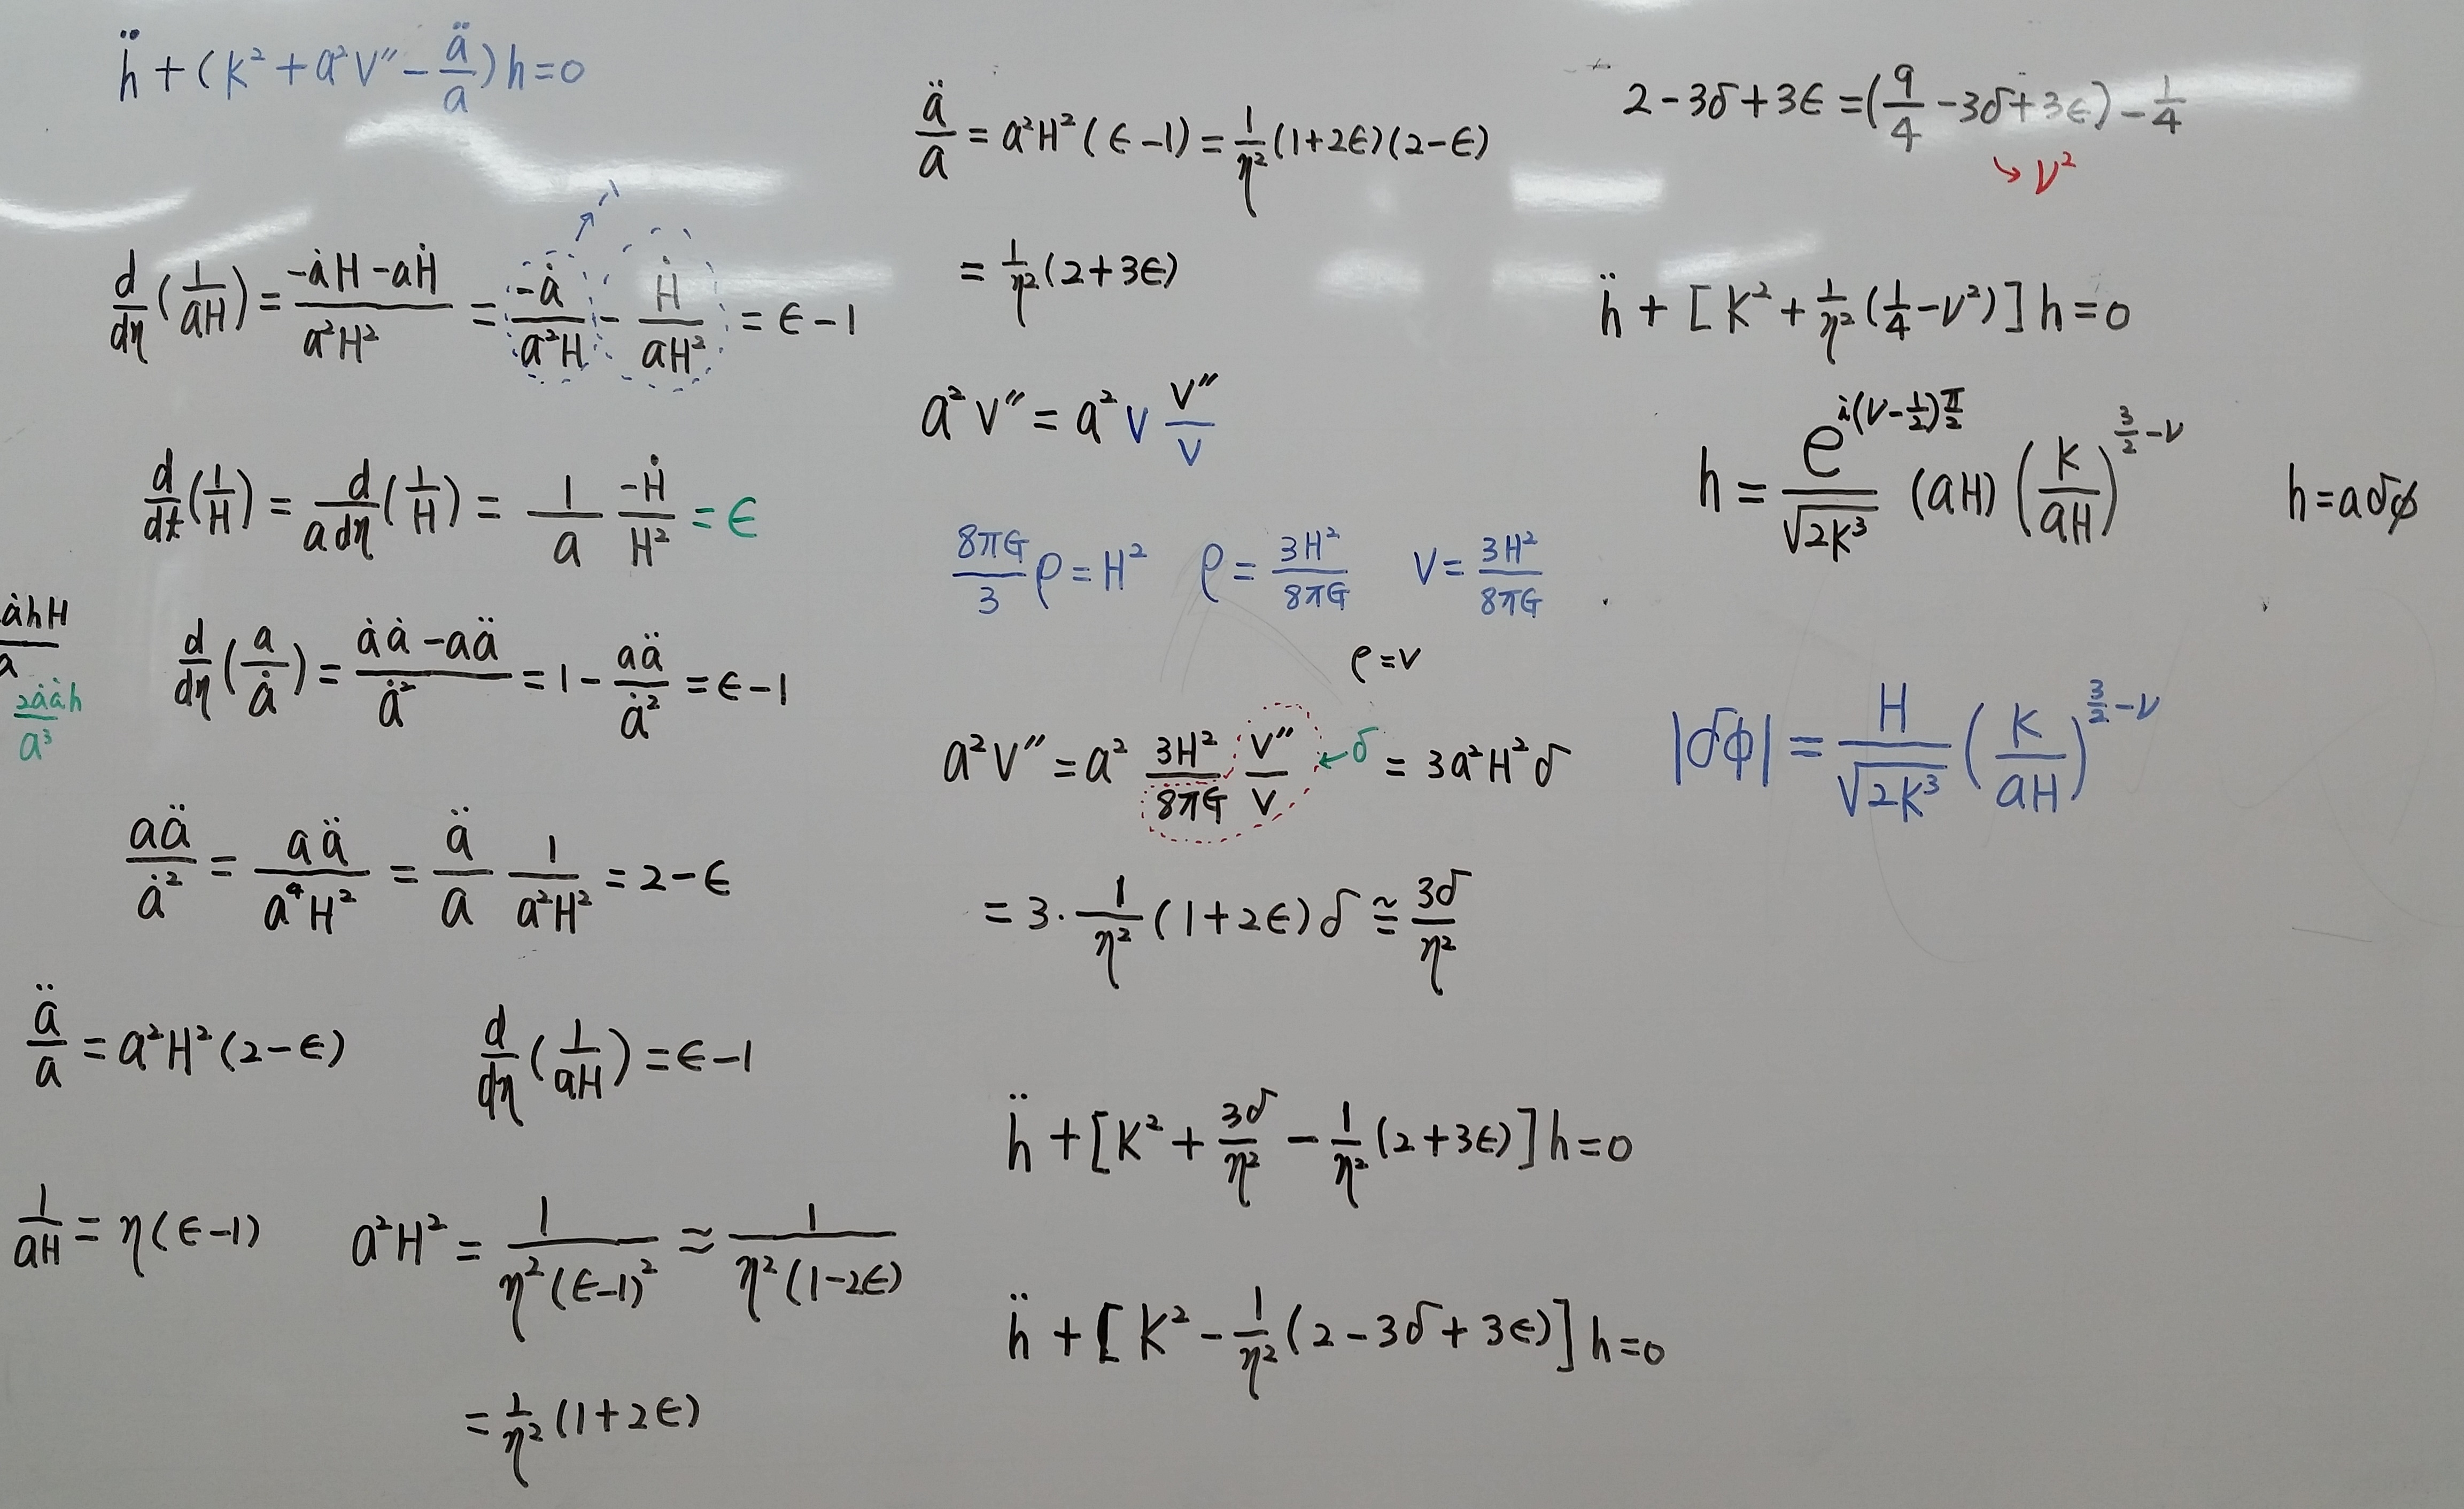 ḧ + (k² + a²V″ − ä/a)h = 0
d/dη (1/aH) = (−ȧH − aḢ)/(a²H²) = −ȧ/(a²H) − Ḣ/(aH²) = ϵ − 1
−1
d/dt (1/H) = d/(a dη) (1/H) = 1/a · −Ḣ/H² = ϵ
ȧhH/a
2ȧȧh/a³
d/dη (a/ȧ) = (ȧȧ − aä)/ȧ² = 1 − aä/ȧ² = ϵ − 1
aä/ȧ² = aä/(a⁴H²) = ä/a · 1/(a²H²) = 2 − ϵ
ä/a = a²H²(2 − ϵ)
d/dη (1/aH) = ϵ − 1
1/aH = η(ϵ − 1)
a²H² = 1/(η²(ϵ−1)²) ≈ 1/(η²(1−2ϵ))
= 1/η² (1 + 2ϵ)
ä/a = a²H²(ϵ − 1) = 1/η² (1+2ϵ)(2−ϵ)
= 1/η² (2 + 3ϵ)
a²V″ = a² V V″/V
8πG/3 ρ = H² ρ = 3H²/8πG V = 3H²/8πG
ρ = V
a²V″ = a² 3H²/8πG V″/V ← δ = 3a²H²δ
= 3 · 1/η² (1 + 2ϵ)δ ≅ 3δ/η²
ḧ + [k² + 3δ/η² − 1/η² (2 + 3ϵ)]h = 0
ḧ + [k² − 1/η² (2 − 3δ + 3ϵ)]h = 0
2 − 3δ + 3ϵ = (9/4 − 3δ + 3ϵ) − 1/4
↘ ν²
ḧ + [k² + 1/η² (1/4 − ν²)]h = 0
h = e^{i(ν−1/2)π/2}/√(2k³) (aH) (k/aH)^{3/2−ν}
h = aδφ
|δφ| = H/√(2k³) (k/aH)^{3/2−ν}